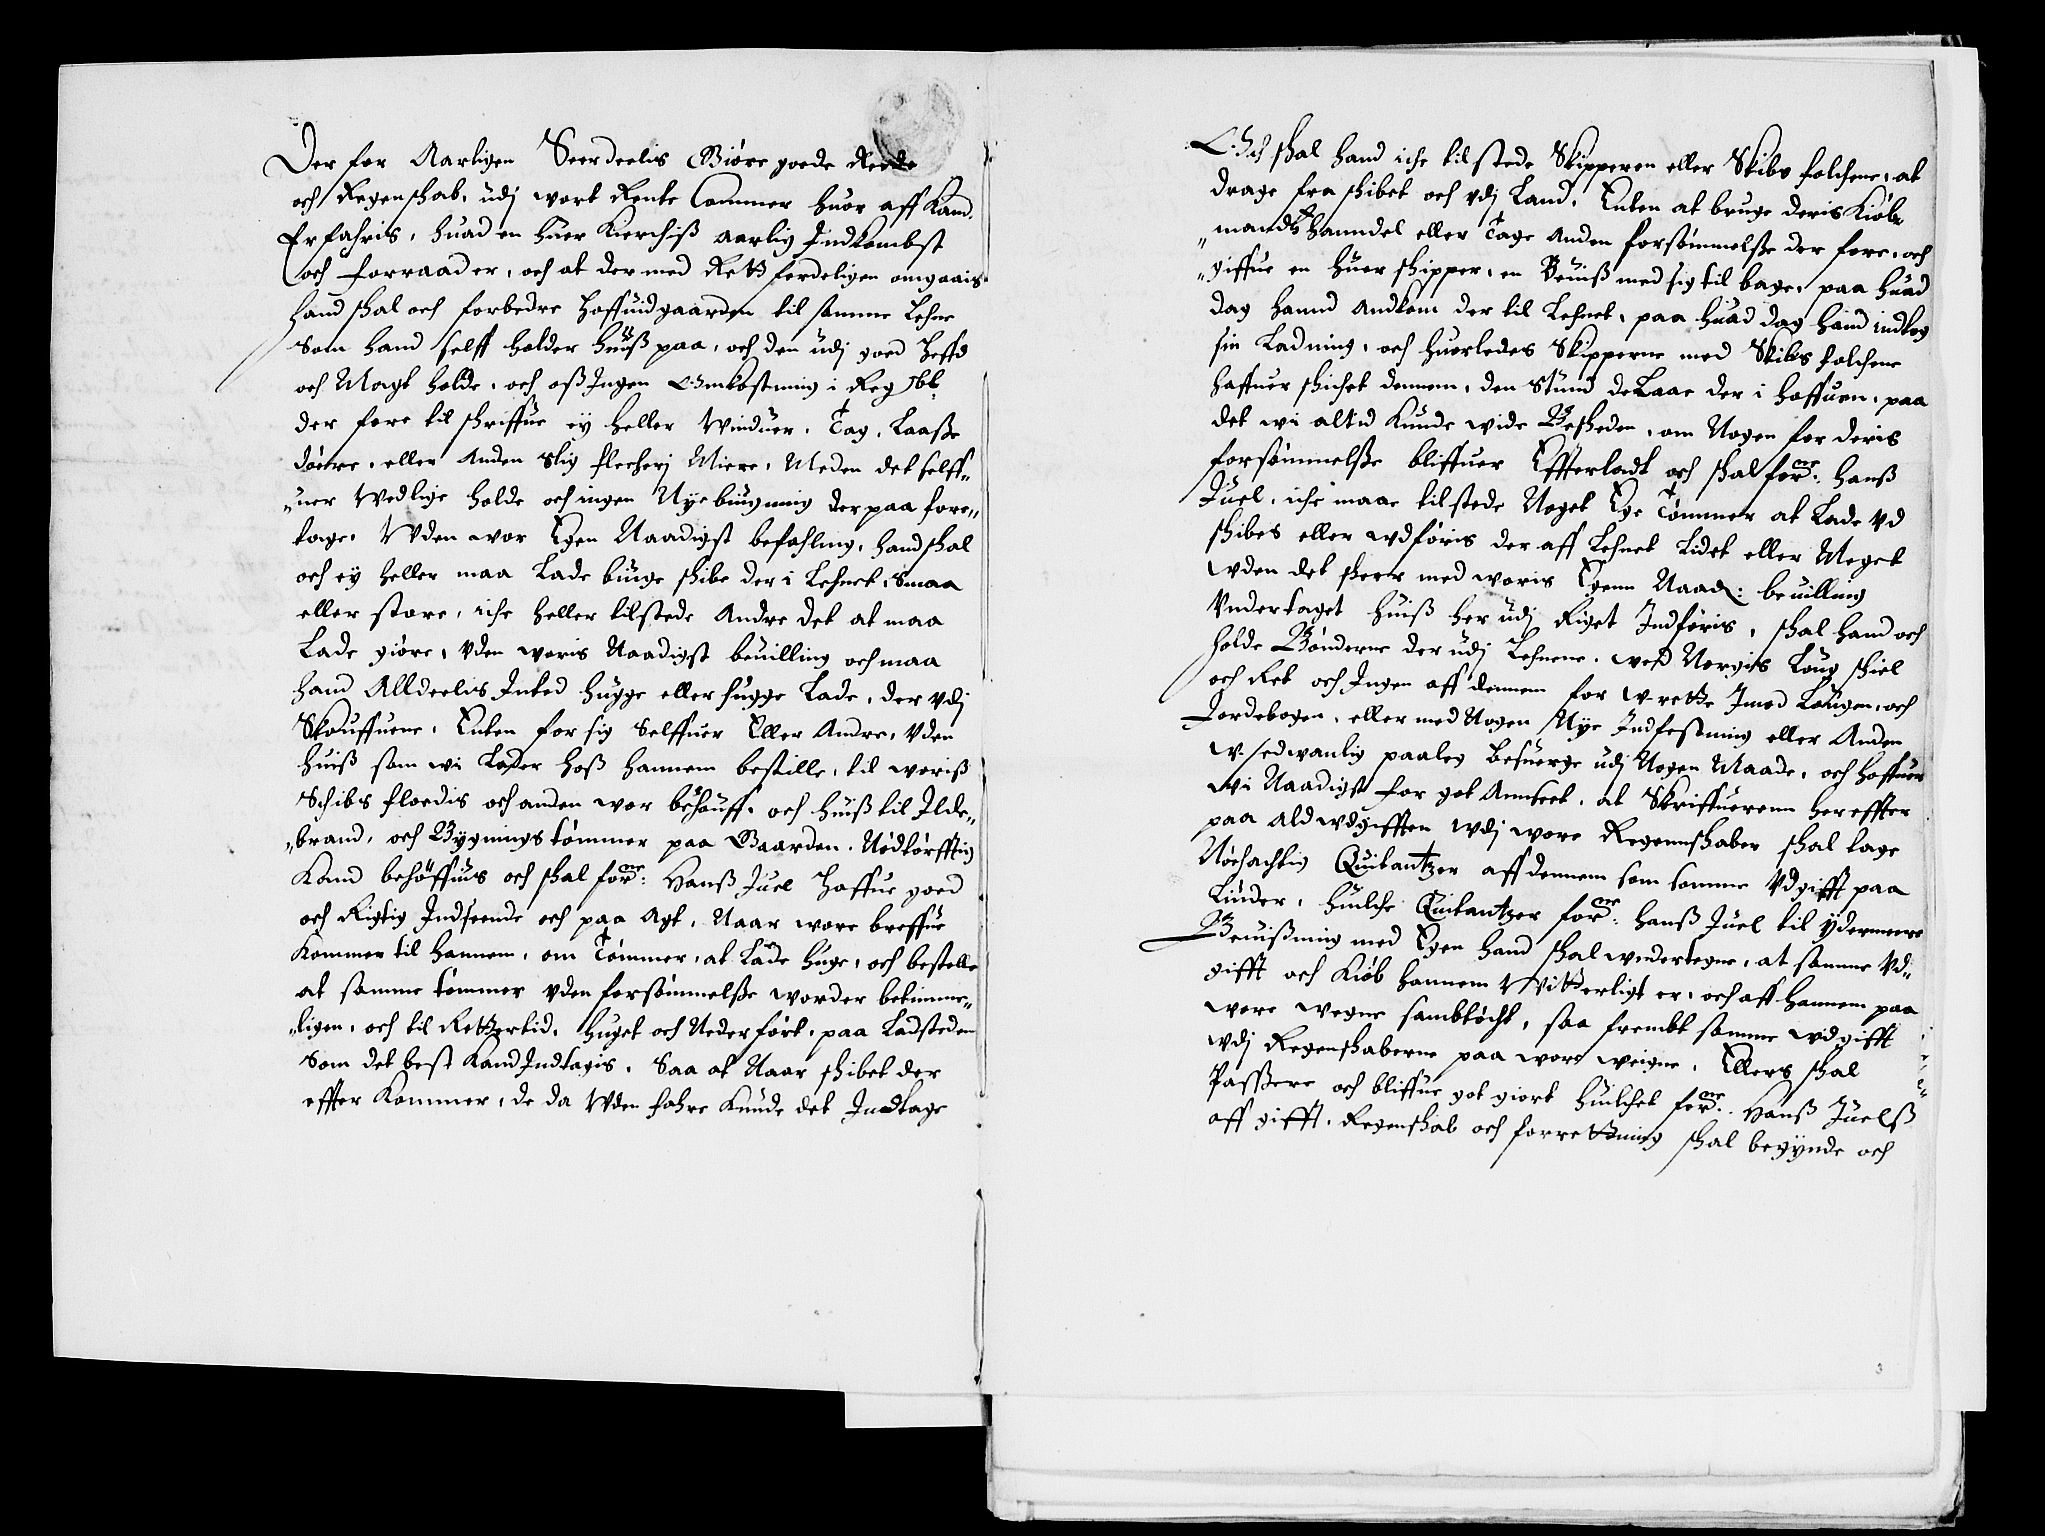 Der for Aarligen Seerdeelis Giöre goede Reede
och Regenschab, udj wort Rente Cammer huor aff Kand
Erfahris, huad en huer Kierchiß aarlig Indkombst
och forraad er, och at der med Rettferdeligen omgaais.
Hand shal och forbedre Hoffuidgaarden til samme Lehne
Som hand selff holder huuß paa, och den udj goed Heffd
och Magt holde, och oß Ingen Omkostning i Regskb:
der fore til schriffue ey heller Winduer, Tag, Laaße
döerre, eller Anden slig flecherj Miere, Meden det selff„
„uer Wedlige holde och ingen Nye biugning der paa fore„
tage, Wden wor Egen Naadigst befahling, hand shal
och ey heller maa Lade biuge shibe der i Lehnet, Smaa
eller store, iche heller tilstede Andre det at maa
Lade giöre, Vden woris Naadigst beuilling och maa
hand Alldeelis Inted hugge eller hugge Lade, der Vdj
Skouffuene, Enten for sig Selffuer Eller Andre, Vden
huiß som wi Lader hoß hannem bestille, til woriß
Schibs floedis och anden wor behouff, och huiß til Ilde„
„brand, och Bygnings tömmer paa Gaarden, Nödtörfftig
Kand behöffuis och shal forne: Hanß Juel Haffue goed
och Rigtig Indseende och paa Agt, Naar wore breffue
Kommer til hannem, om Tömmer, at Lade huge, och bestelle
at samme tömmer Vden forsömmelße worder betimme„
„ligen, och til Rettertid, huget och Neder fört, paa Ladsteden
Som det best Kand Indtagis, Saa at Naar shibet der
effter Kommer, de da Wden fahre Kunde det Indtage
Och shal hand iche tilstede Skipperen eller Skibs folchene, at
drage fra shibet och Vdj Land, Enten at bruge deris Kiöb
„mands Hanndel eller Tage Anden forsömmelße der fore, och
„giffue en huer shipper, en Beuiß med sig til bage, paa huad
dag hannd Andkom der til Lehnet, paa huad dag hand indtog
sin Ladning, och huorledes Skipperne med Skibs folchene
haffuer shichet dennem, den stund de Laae der i haffuen, paa
det wi altid Kunde wide Besheden, om Nogen for deris
forsömmelße bliffuer Effterladt och shal forne: Hanß
Juel, iche maae tilstede Noget Ege Tömmer at Lade Vd
shibes eller udföris der aff Lehnet Lidet eller Meget
wden det sheer med woris Egenn Naad: beuilling
Vndertaget huiß her udj Riget Indföris, shal hand och
holde Bönderne der udj Lehnene, wed Norgis Loug shiel
och Ret och Ingen aff dennem for wrette Imod Lougen, och
Jordebogen, eller med Nogen Nye Indfestning eller Anden
w-sedwanlig paaleg besuerge udj Nogen Maade, och haffuer
wi Naadigst for got Annseet, at Skriffuerenn her effter
paa ald wdgifften Wdj wore Regennshaber shal tage
Nöchachtig Quitantzer aff dennem som samme Vdgifft paa
Liuder, huilche Quitantzer forne: Hanß Juel til ydermeere
Beuißning med Egen hand shal wndertegne, at samme Vd„
gifft och Kiöb hannem Witterligt er, och aff hannem paa
wore wegne sambtöcht, saa frembt samme wdgifft
wdj Regenshaberne paa wore weigne, Ellers shal
Passere och bliffue got giort huilchet forne: Hanß Juelß
aff gifft, Regenshab och forrettning shal begynde och
3